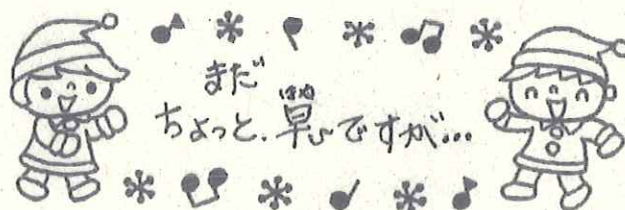 まだ
ちょっと、早いですが…